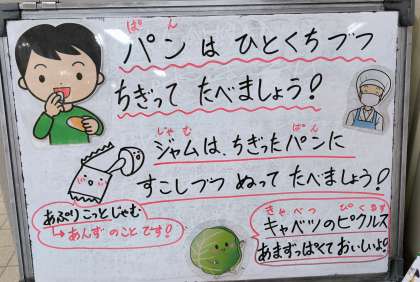 ぱん
パンは ひとくちづつ
ちぎって たべましょう!
じゃむ ぱん
ジャムは、ちぎったパンに
すこしづつ ぬって たべましょう!
あぷりこっとじゃむ
↳あんずのことです!
きゃべつ ぴくるす
キャベツのピクルス
あまずっぱくておいしいよ!